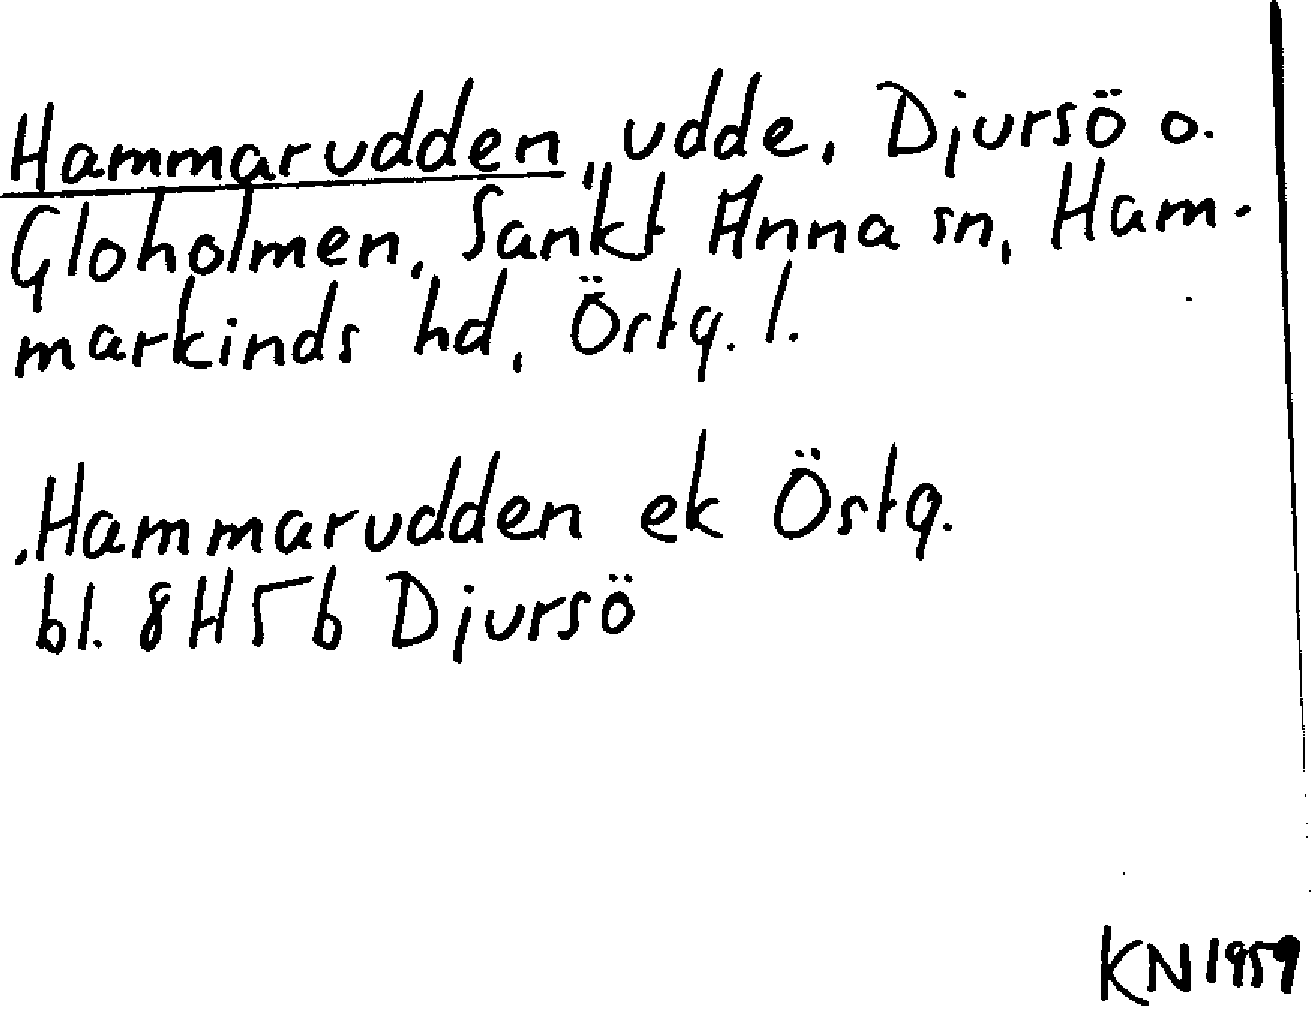 Hammarudden, udde, Djursö o.
Gloholmen, Sankt Anna sn, Ham-
markinds hd, Östg. l.
Hammarudden ek Östg.
bl. 8H5b Djursö
KN 1959